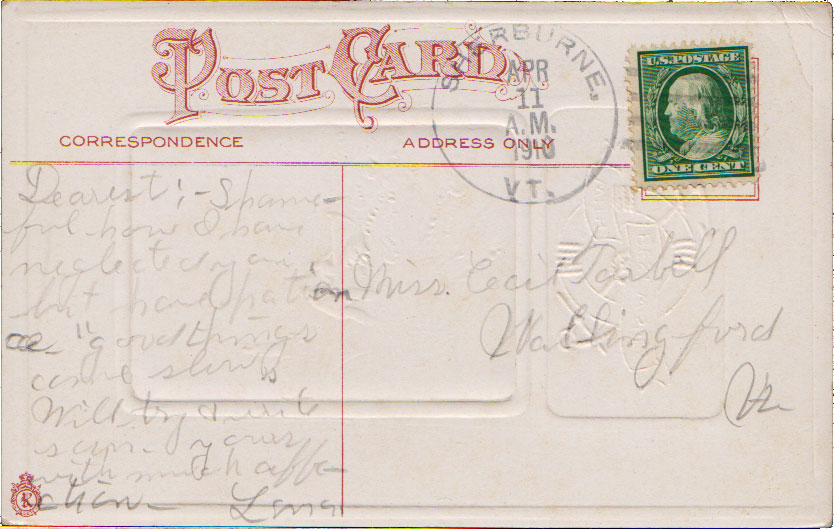 POST CARD
CORRESPONDENCE
ADDRESS ONLY
SHERBURNE,
APR
11
A.M.
1910
VT.
U.S. POSTAGE
ONE CENT
Dearest:- Shame-
ful how I have
neglected you
but have patien
ce "good things
come slow"
Will try & write
soon. yours
with much affe-
ction - Lena
Miss. Cecil Tarbell
Wallingford
Vt
K